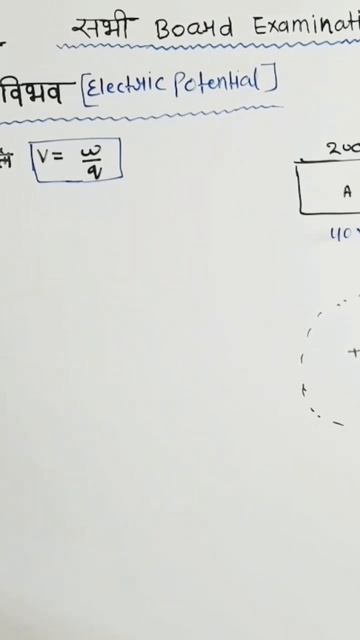 सभी Board Examinati
विभव [Electric Potential]
V = w/q
200
A
40
+